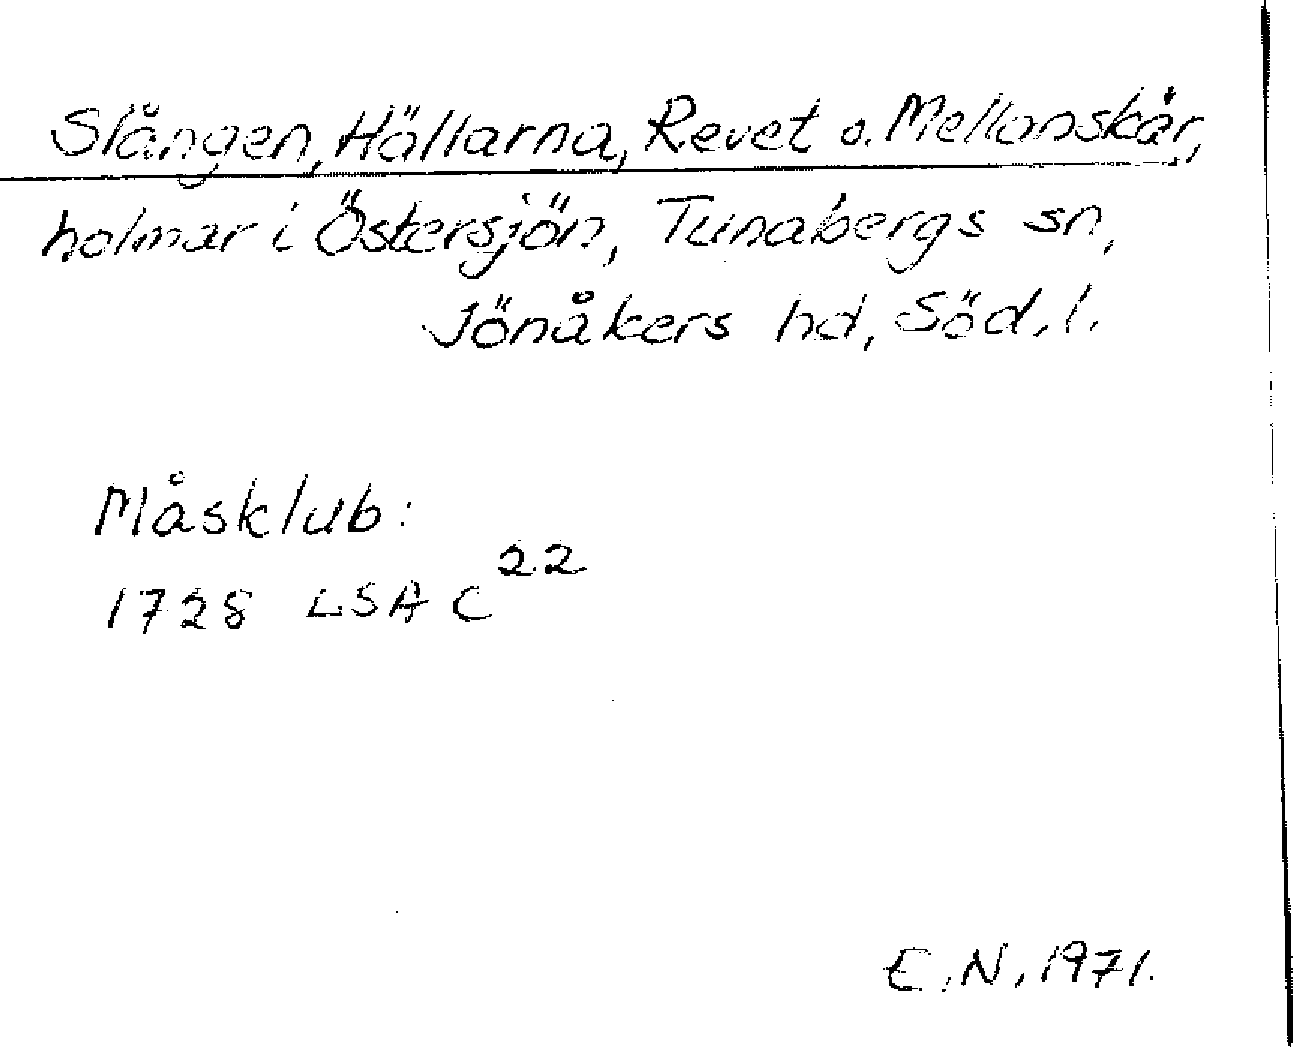 Slången, Hällarna, Revet o. Mellanskär,
holmar i Östersjön, Tunabergs sn,
Jönåkers hd, Söd. l.
Måsklub:
1728 LSA C 22
E.N. 1971.